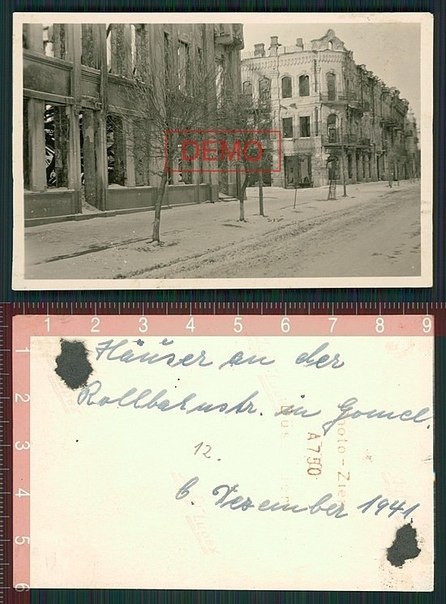 DEMO
1 2 3 4 5 6 7 8 9
1
2
3
4
5
6
Häuser an der
Rollbahnstr. in Gomel.
12.
6. Dezember 1941
Photo-Zie
A750